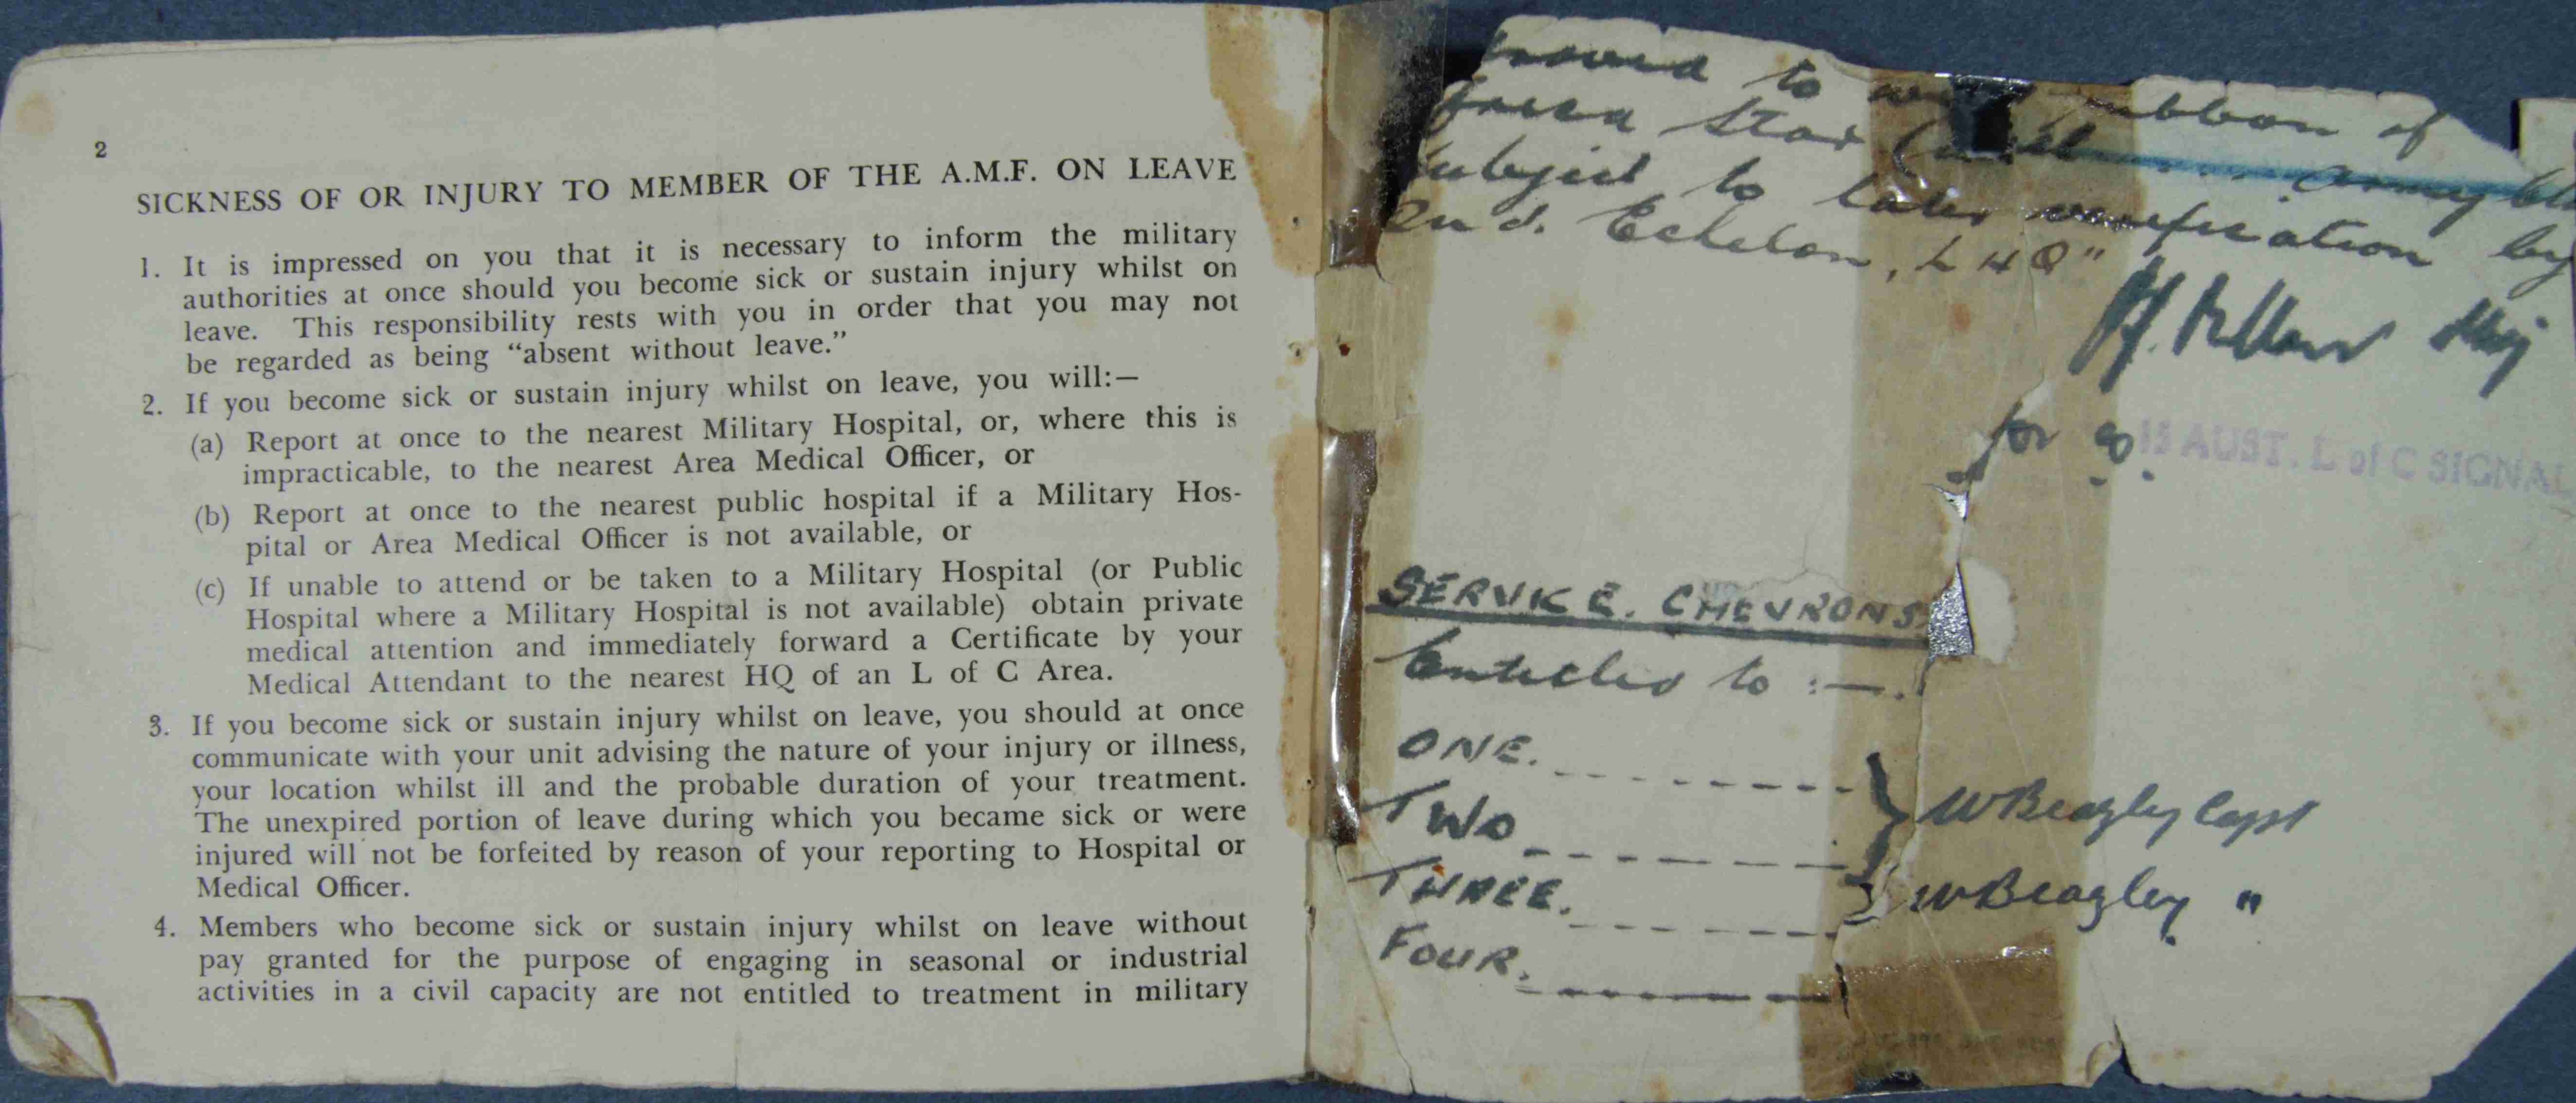 2
SICKNESS OF OR INJURY TO MEMBER OF THE A.M.F. ON LEAVE
1. It is impressed on you that it is necessary to inform the military
authorities at once should you become sick or sustain injury whilst on
leave. This responsibility rests with you in order that you may not
be regarded as being “absent without leave.”
2. If you become sick or sustain injury whilst on leave, you will:—
(a) Report at once to the nearest Military Hospital, or, where this is
impracticable, to the nearest Area Medical Officer, or
(b) Report at once to the nearest public hospital if a Military Hos-
pital or Area Medical Officer is not available, or
(c) If unable to attend or be taken to a Military Hospital (or Public
Hospital where a Military Hospital is not available) obtain private
medical attention and immediately forward a Certificate by your
Medical Attendant to the nearest HQ of an L of C Area.
3. If you become sick or sustain injury whilst on leave, you should at once
communicate with your unit advising the nature of your injury or illness,
your location whilst ill and the probable duration of your treatment.
The unexpired portion of leave during which you became sick or were
injured will not be forfeited by reason of your reporting to Hospital or
Medical Officer.
4. Members who become sick or sustain injury whilst on leave without
pay granted for the purpose of engaging in seasonal or industrial
activities in a civil capacity are not entitled to treatment in military
to ribbon of
Star Army
subject to later verification by
2nd. Echelon, LHQ"
Maj
for
15 AUST. L of C SIGNAL
SERVICE. CHEVRONS
Entitled to :—.
ONE.
TWO
WBeazley Capt
THREE.
WBeazley "
FOUR.